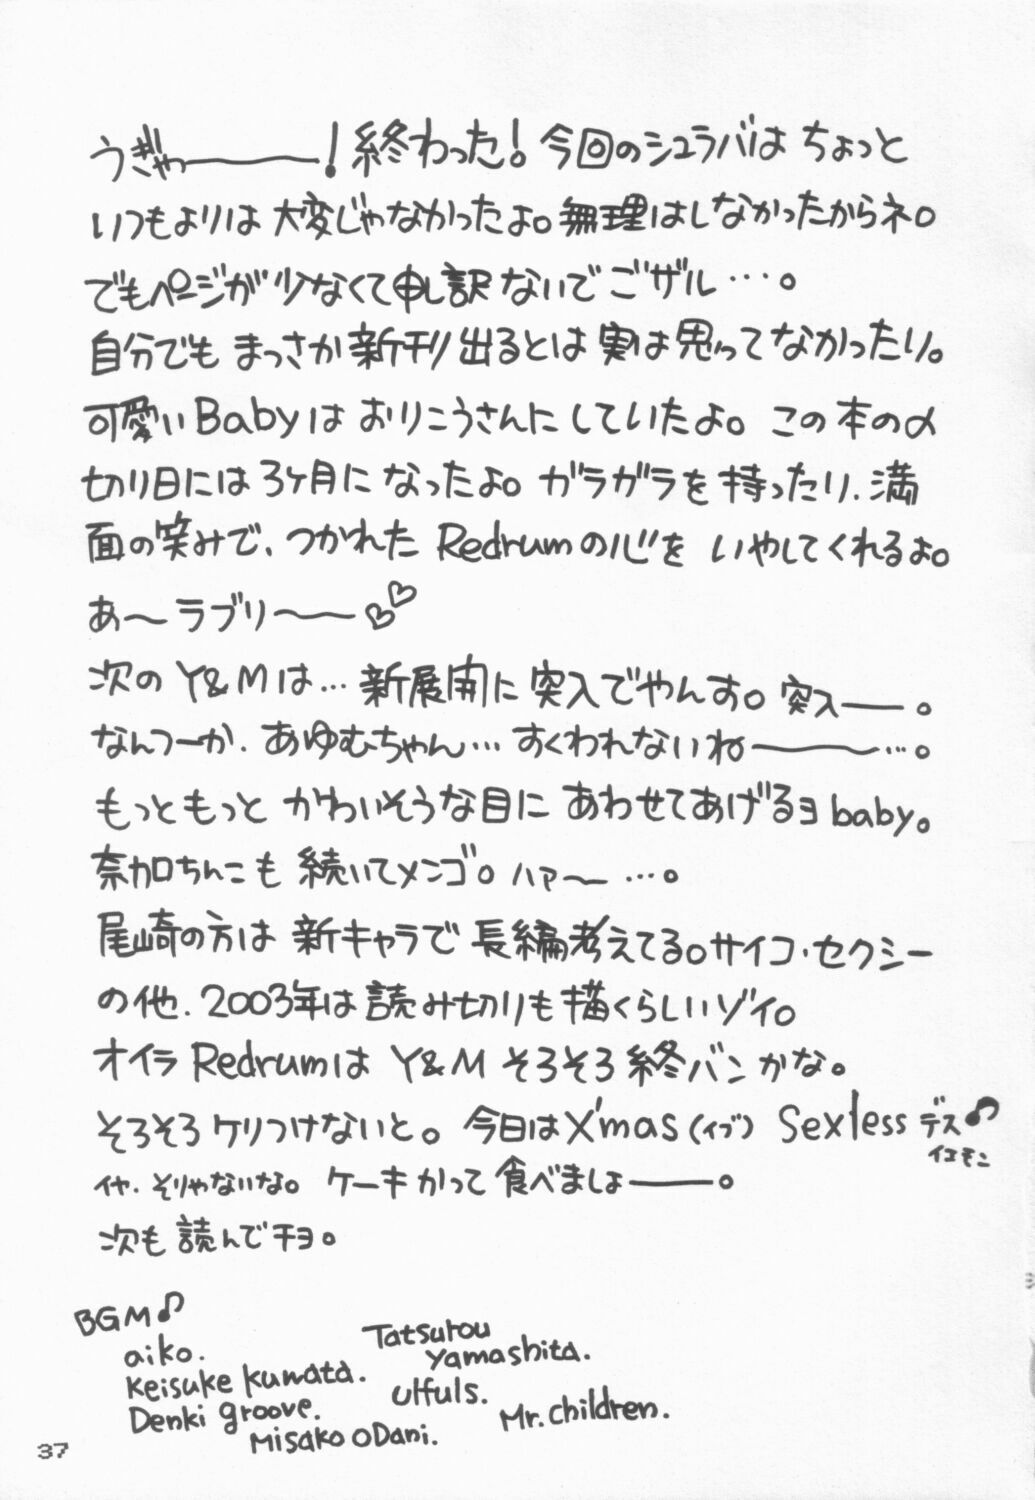 うぎゃーーー!終わった!今回のシュラバは ちょっと
いつもよりは 大変じゃなかったよ。無理はしなかったからネ。
でもページが少なくて申し訳ないでござル…。
自分でも まっさか新刊出るとは実は思ってなかったり。
可愛いBabyは おりこうさんにしていたよ。この本の〆
切り日には3ヶ月になったよ。ガラガラを持ったり、満
面の笑みで、つかれた Redrumの心を いやしてくれるよ。
あ〜ラブリ〜ー♡♡
次の Y&Mは…新展開に突入でやんす。突入ー。
なんつーか、あゆむちゃん…すくわれないねーーー…。
もっともっと かわいそうな目に あわせてあげるヨbaby。
奈加ちんこも 続いてメンゴ。ハァ〜…。
尾崎の方は 新キャラで 長編考えてる。サイコ・セクシー
の他、2003年は読み切りも描くらしいゾイ。
オイラ Redrumは Y&M そろそろ終バンかな。
そろそろケリつけないと。今日はX'mas(イブ) Sexlessデス♪
イエモン
イヤ、そりゃないな。ケーキかって食べましょーー。
次も読んでチョ。
BGM♪
aiko.
Tatsurou Yamashita.
Keisuke Kuwata.
Ulfuls.
Denki groove.
Mr.children.
Misako oDani.
37